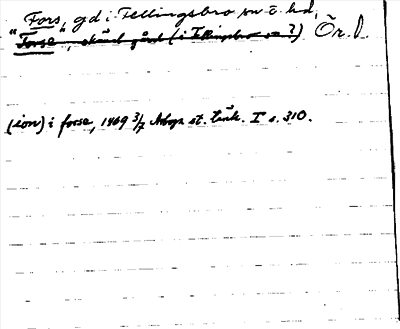 Fors, gd i Fellingsbro sn ö. hd, Ör. l.
"Forse", okänd gård (i Fellingsbro sn?)
(ion) i forse, 1469 3/7 Arboga st. tänk. I s. 310.